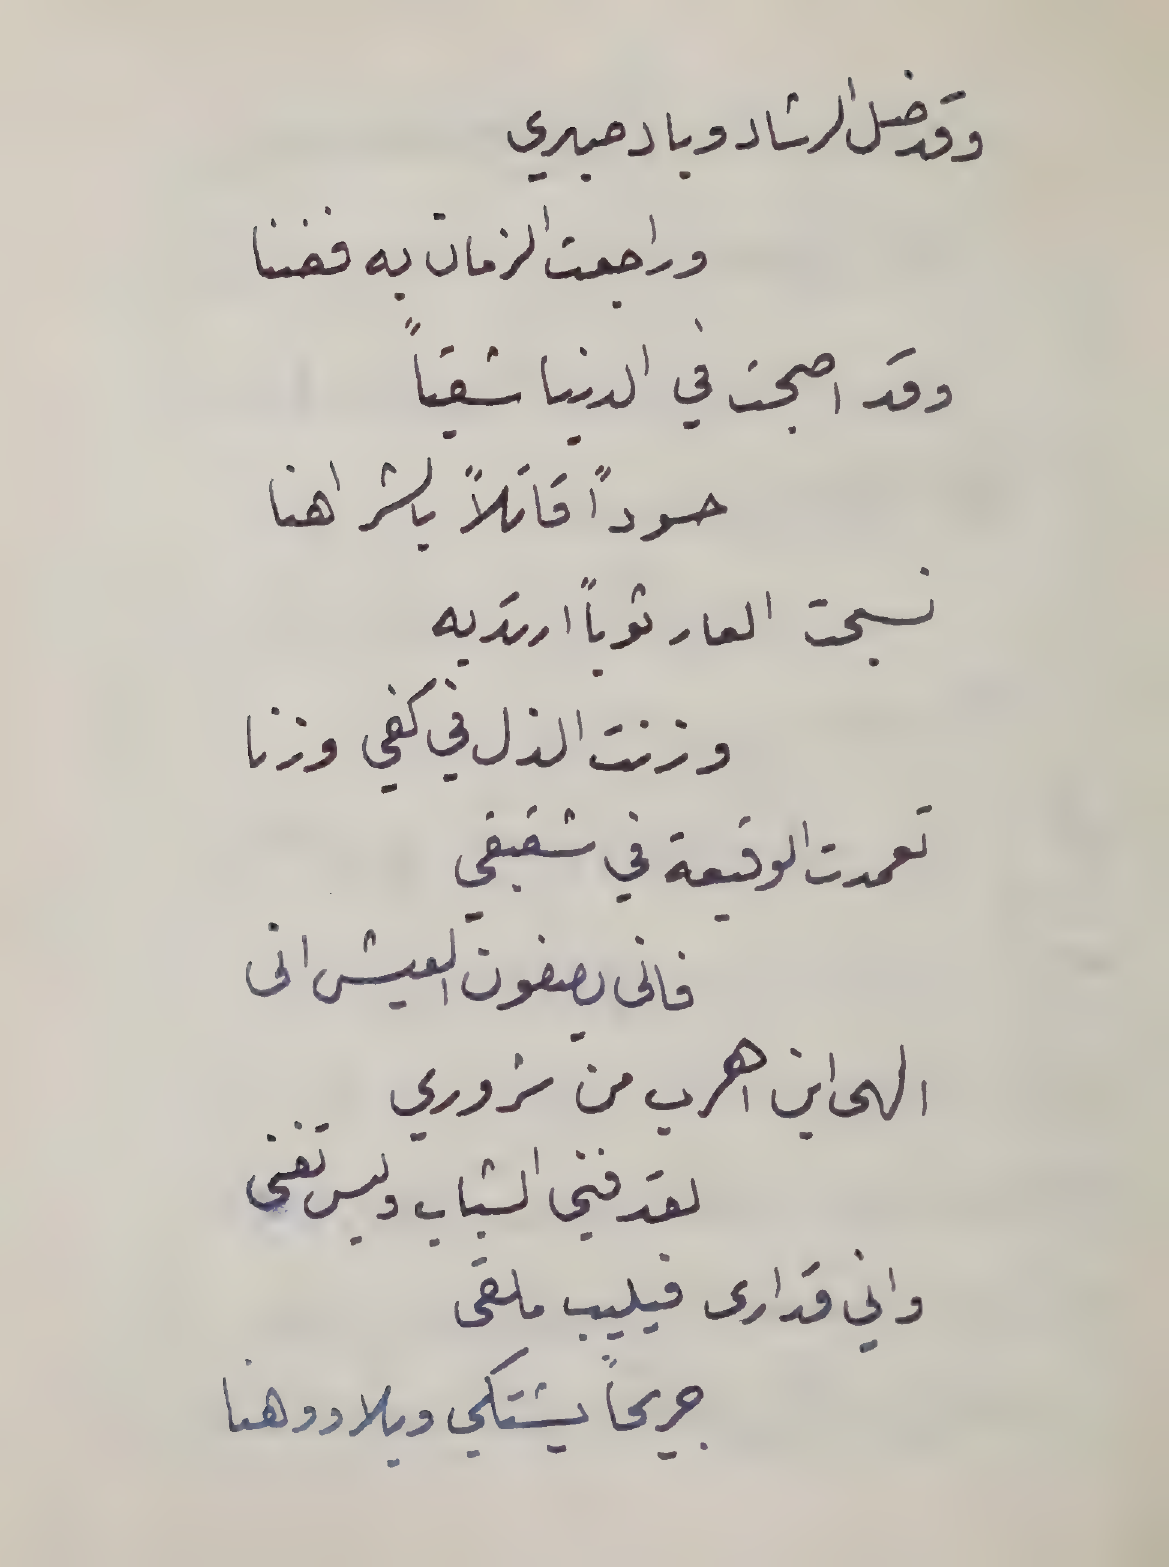 وقد ضل الرشاد وباد صبري
وراجعت الزمان به فضنا
وقد اصبحت في الدنيا شقياً
حسوداً قاتلاً بالشر اهنا
نسجت العار ثوباً ارتديه
وزنت الذل في كفي وزنا
تعمدت الوقيعة في شقيقي
فانى يصفون العيش انى
الهى اين اهرب من شروري
لقد فني الشباب وليس تفنى
واني قد ارى فيليب ملقى
جريحاً يشتكي ويلا ووهنا